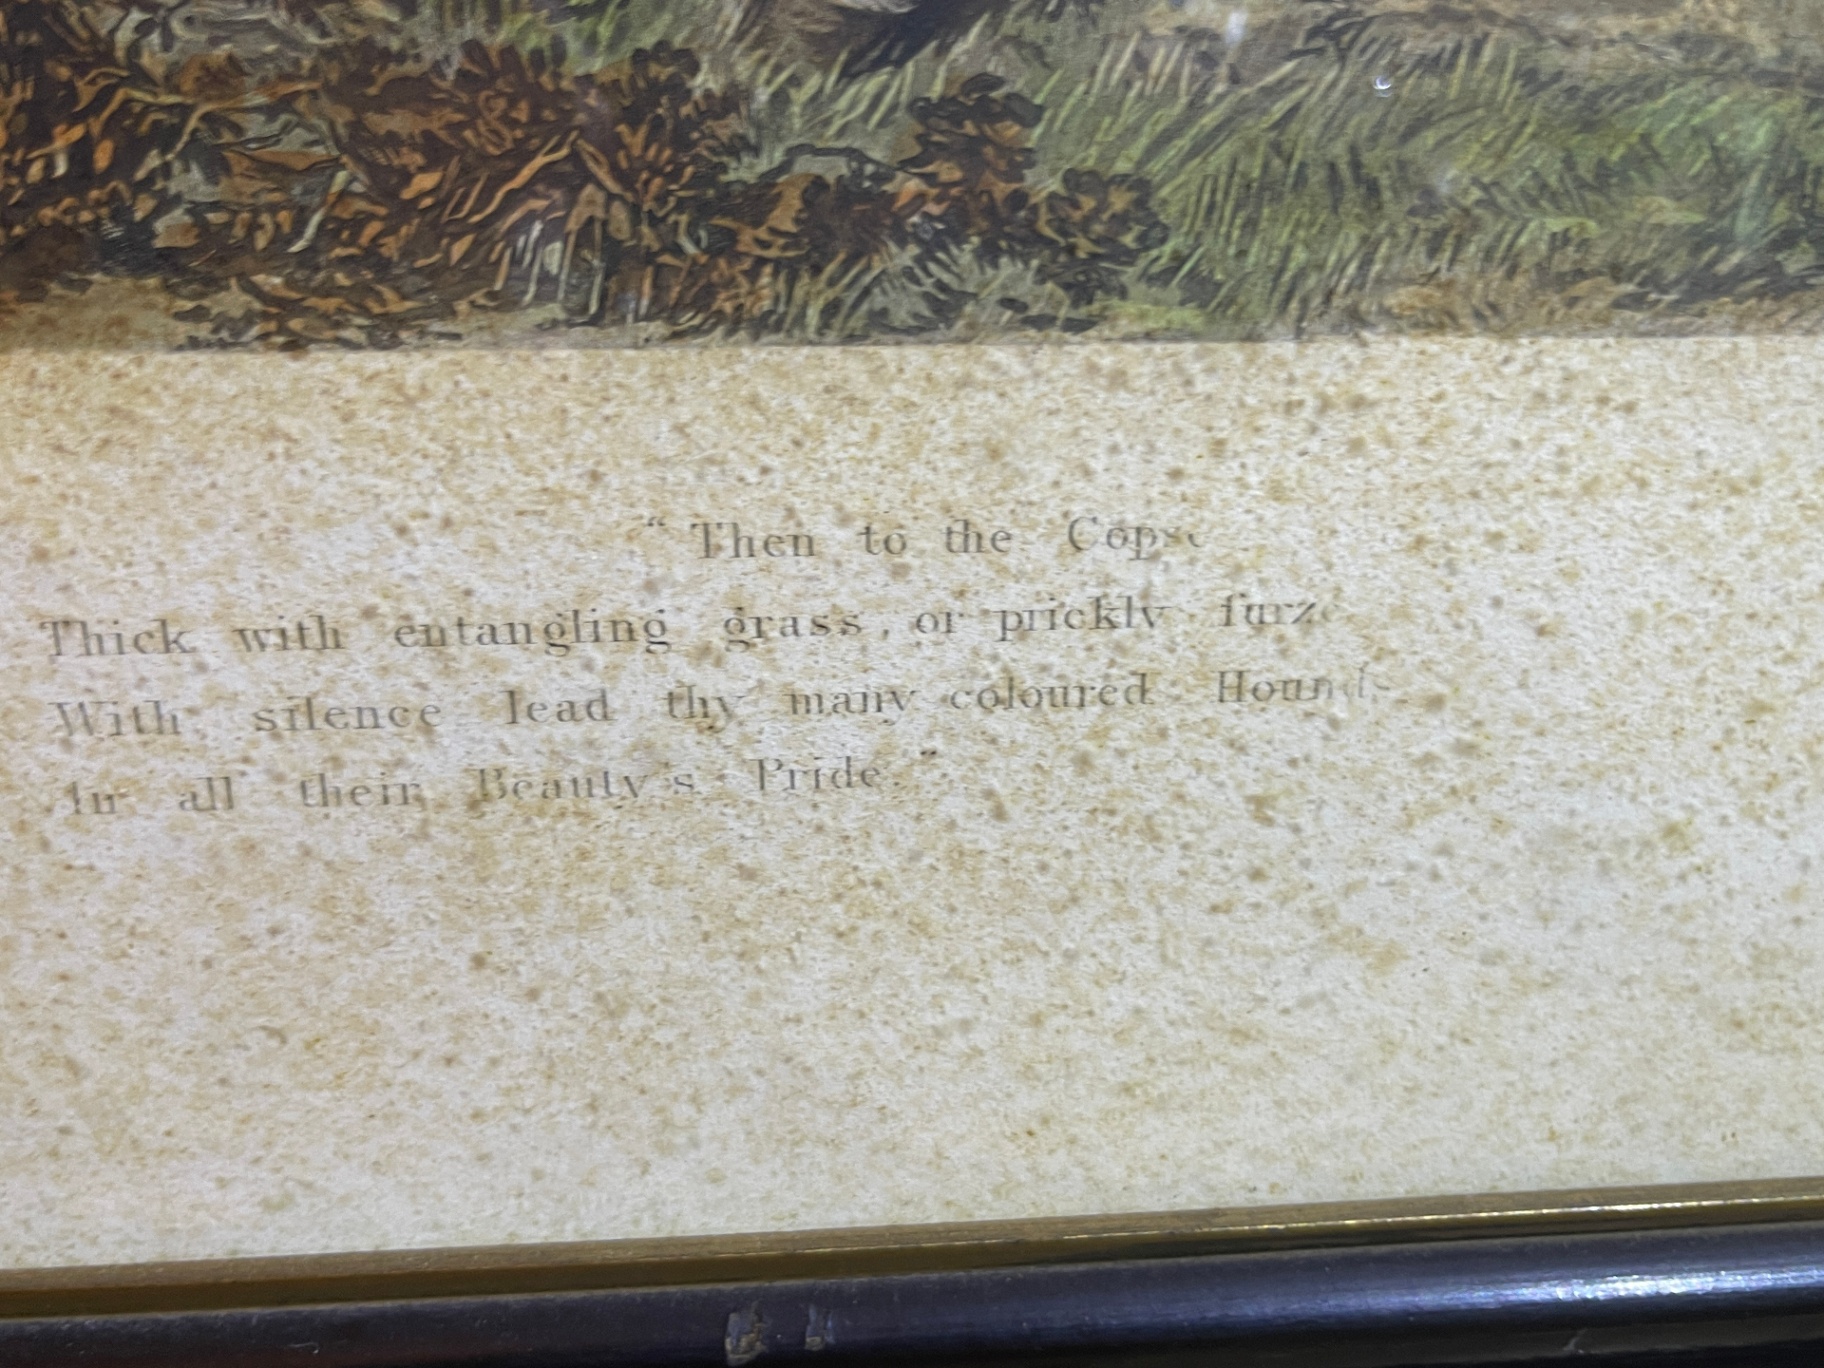 “Then to the Copse
Thick with entangling grass, or prickly furze
With silence lead thy many coloured Hounds
In all their Beauty's Pride.”